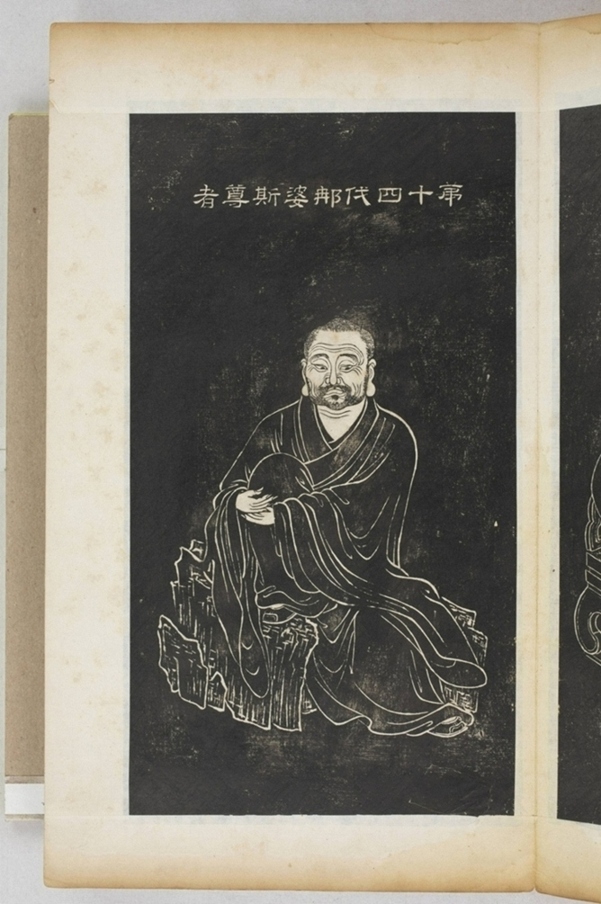 第十四代那婆斯尊者